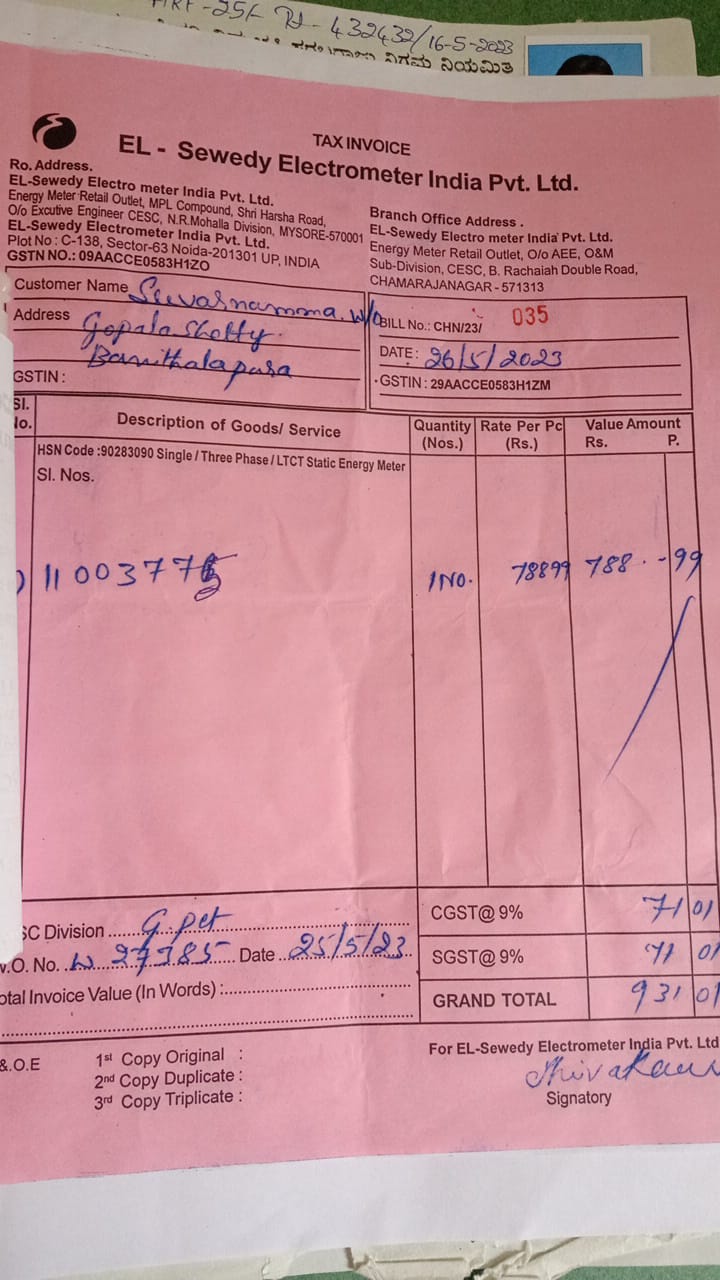 -25/- 432432/16-5-2023
ನಿಗಮ ನಿಯಮಿತ
TAX INVOICE
EL - Sewedy Electrometer India Pvt. Ltd.
Ro. Address.
EL-Sewedy Electro meter India Pvt. Ltd.
Energy Meter Retail Outlet, MPL Compound, Shri Harsha Road,
O/o Excutive Engineer CESC, N.R.Mohalla Division, MYSORE-570001
EL-Sewedy Electrometer India Pvt. Ltd.
Plot No : C-138, Sector-63 Noida-201301 UP, INDIA
GSTN NO.: 09AACCE0583H1ZO
Branch Office Address .
EL-Sewedy Electro meter India Pvt. Ltd.
Energy Meter Retail Outlet, O/o AEE, O&M
Sub-Division, CESC, B. Rachaiah Double Road,
CHAMARAJANAGAR - 571313
Customer Name W/o
Address Gopala Shetty.
Banithalapura
GSTIN :
BILL No.: CHN/23/ 035
DATE : 26/5/2023
GSTIN : 29AACCE0583H1ZM
Sl. No. Description of Goods/ Service Quantity (Nos.) Rate Per Pc (Rs.) Value Amount Rs. P.
HSN Code :90283090 Single / Three Phase / LTCT Static Energy Meter
Sl. Nos.
) 11003775 1 NO. 78899 788 . - 99
SC Division G. pet
.O. No. W 27985 Date 25/5/23
otal Invoice Value (In Words) :
CGST@ 9% 71 01
SGST@ 9% 71 01
GRAND TOTAL 931 01
&.O.E
1st Copy Original :
2nd Copy Duplicate :
3rd Copy Triplicate :
For EL-Sewedy Electrometer India Pvt. Ltd
Signatory